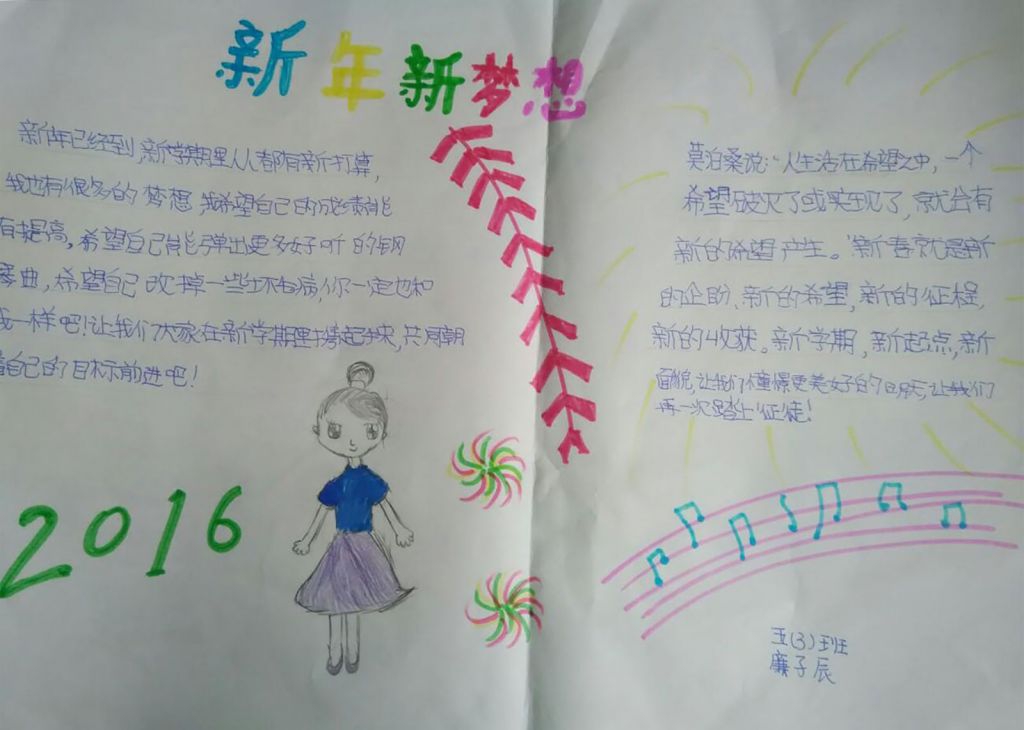 新年新梦想
新年已经到,新学期里人人都有新打算,
我也有很多的梦想,我希望自己的成绩能
有提高,希望自己能弹出更多好听的钢
琴曲,希望自己改掉一些坏毛病,你一定也和
我一样吧!让我们大家在新学期里撸起袖来,共同朝
着自己的目标前进吧!
2016
莫泊桑说:“人生活在希望之中,一个
希望破灭了或实现了,就会有
新的希望产生。”新春就是新
的企盼、新的希望,新的征程,
新的收获。新学期,新起点,新
面貌,让我们憧憬更美好的明天,让我们
再一次踏上征徒!
五(3)班
廉子辰